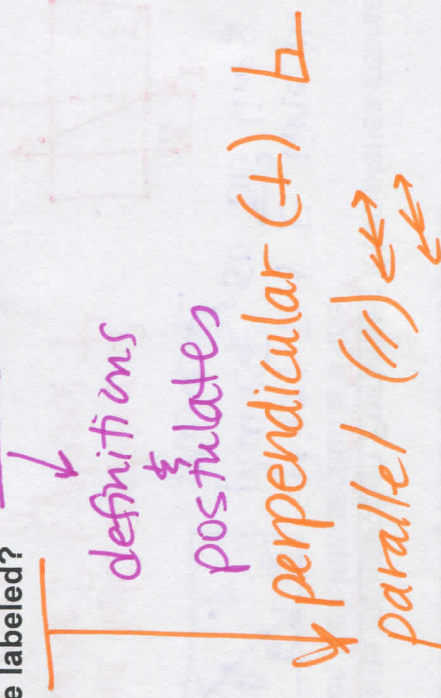 e labeled?
definitions
&
postulates
perpendicular (⊥)
parallel (//)